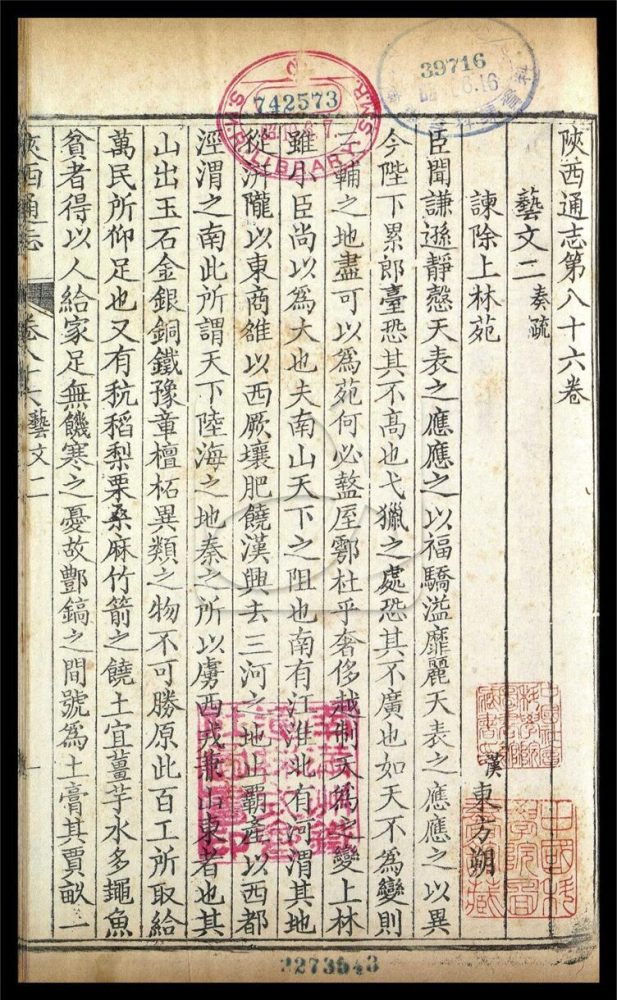 陝西通志第八十六卷
藝文二 奏疏
諫除上林苑 漢 東方朔
臣聞謙遜靜慤天表之應應之以福驕溢靡麗天表之應應之以異
今陛下累郎臺恐其不高也弋獵之處恐其不廣也如天不為變則
三輔之地盡可以為苑何必盩厔鄠杜乎奢侈越制天為之變上林
雖小臣尚以為大也夫南山天下之阻也南有江淮北有河渭其地
從汧隴以東商雒以西厥壤肥饒漢興去三河之地止霸產以西都
涇渭之南此所謂天下陸海之地秦之所以虜西戎兼山東者也其
山出玉石金銀銅鐵豫章檀柘異類之物不可勝原此百工所取給
萬民所仰足也又有秔稻梨栗桑麻竹箭之饒土宜薑芋水多鼃魚
貧者得以人給家足無饑寒之憂故酆鎬之間號為土膏其賈畝一
陝西通志 卷八十六 藝文二 一
742573
S.M.R. LIBRARY S.M.R.
39716